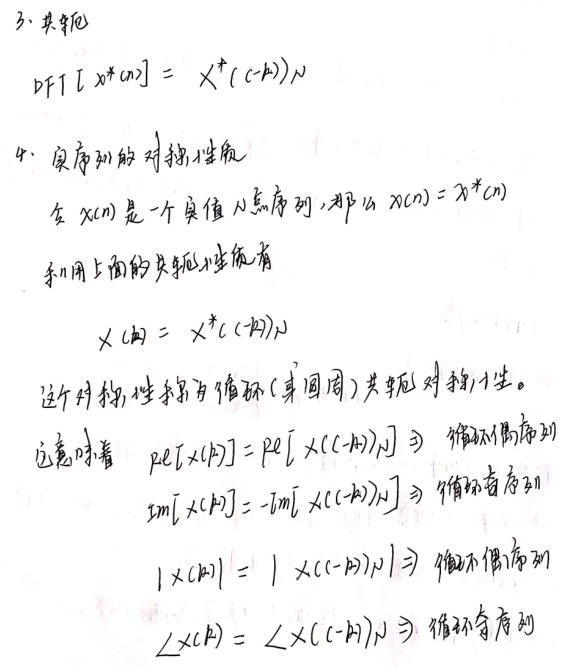 3. 共轭
DFT[x*(n)] = X*((-k))N
4. 实序列的对称性质
令 x(n) 是一个实值 N点序列,那么 x(n) = x*(n)
利用上面的共轭性质有
X(k) = X*((-k))N
这个对称性称为循环(或圆周)共轭对称性。
这意味着 Re[X(k)] = Re[X((-k))N] ⇒ 循环偶序列
Im[X(k)] = -Im[X((-k))N] ⇒ 循环奇序列
|X(k)| = |X((-k))N| ⇒ 循环偶序列
∠X(k) = ∠X((-k))N ⇒ 循环奇序列